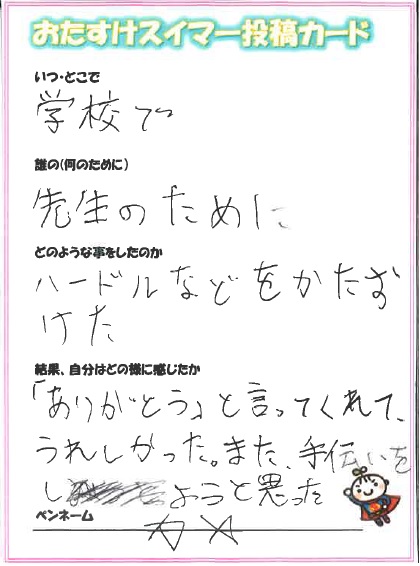 おたすけスイマー投稿カード
いつ・どこで
学校で
誰の(何のために)
先生のために
どのような事をしたのか
ハードルなどをかたず
けた
結果、自分はどの様に感じたか
「ありがとう」と言ってくれて、
うれしかった。また、手伝いを
しようと思った
ペンネーム